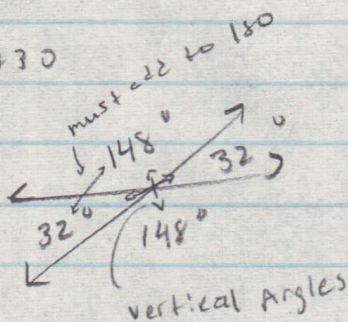 +30
must add to 180
148°
32°
32°
148°
vertical Angles